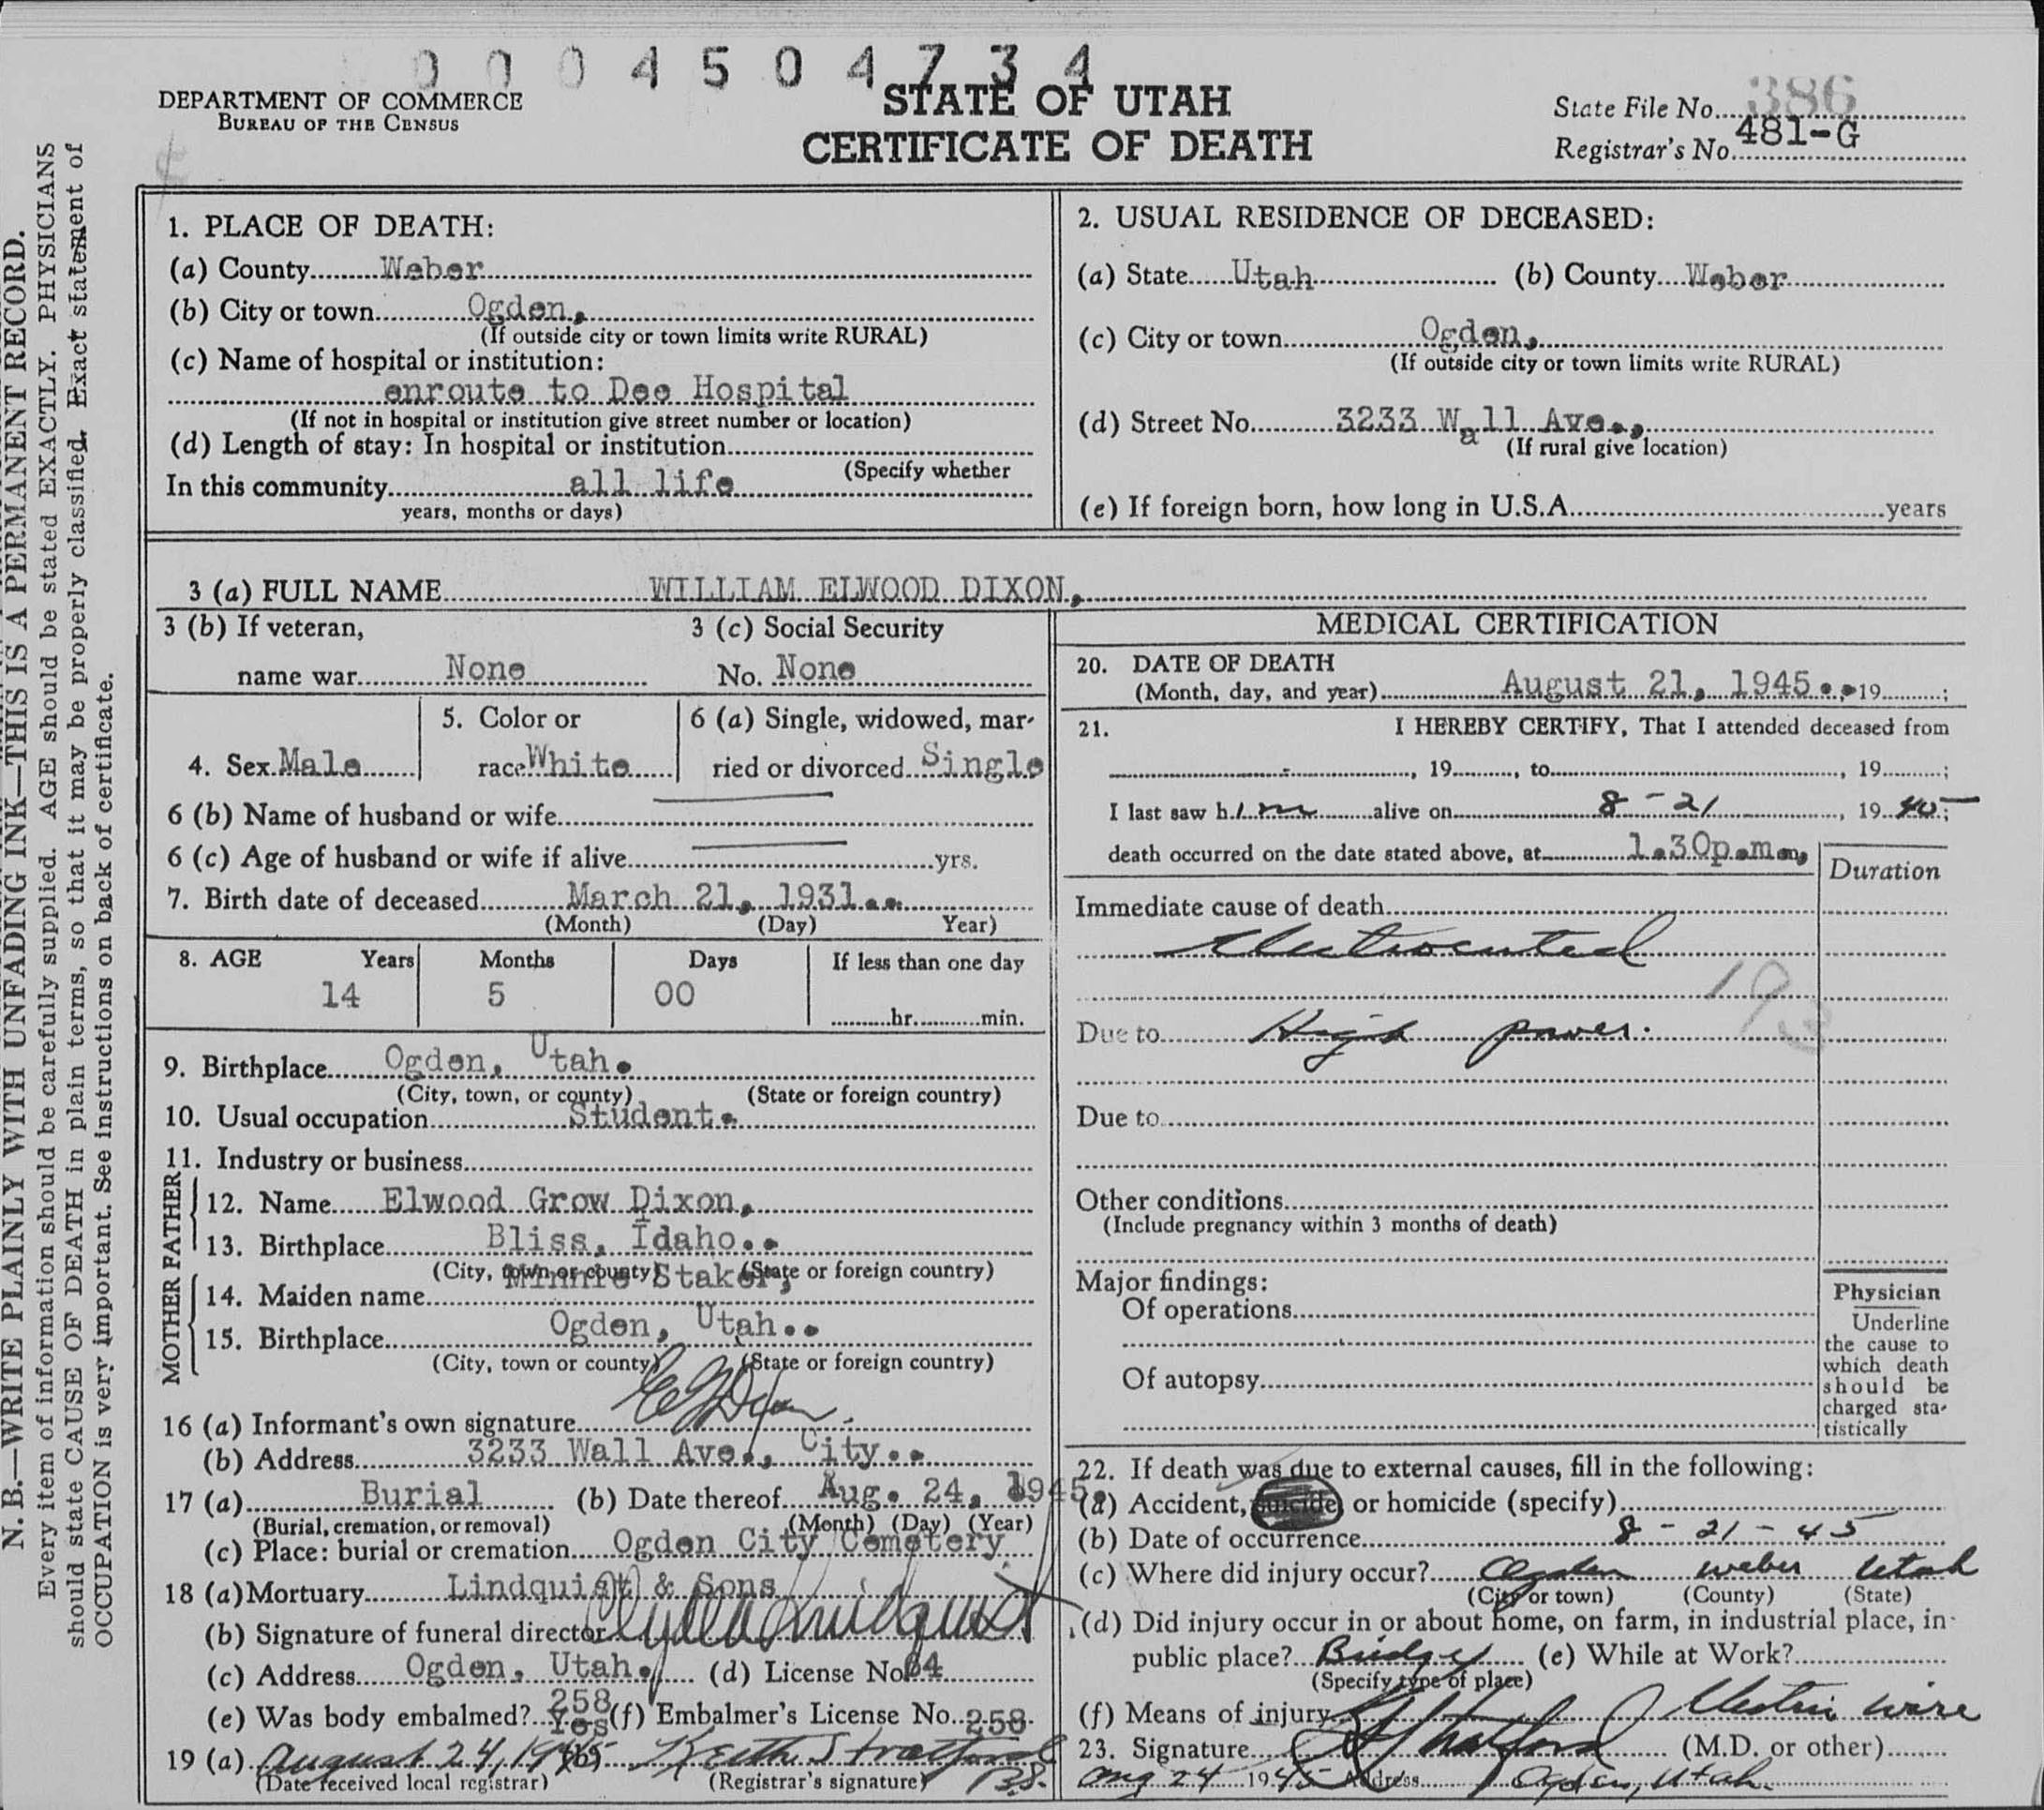 0 0 0 4 5 0 4 7 3 4
DEPARTMENT OF COMMERCE
BUREAU OF THE CENSUS
STATE OF UTAH
CERTIFICATE OF DEATH
State File No. 386
Registrar's No. 481-G
N. B.—WRITE PLAINLY WITH UNFADING INK—THIS IS A PERMANENT RECORD.
Every item of information should be carefully supplied. AGE should be stated EXACTLY. PHYSICIANS
should state CAUSE OF DEATH in plain terms, so that it may be properly classified. Exact statement of
OCCUPATION is very important. See instructions on back of certificate.
1. PLACE OF DEATH:
(a) County Weber
(b) City or town Ogden,
(If outside city or town limits write RURAL)
(c) Name of hospital or institution:
enroute to Dee Hospital
(If not in hospital or institution give street number or location)
(d) Length of stay: In hospital or institution
(Specify whether
In this community all life
years, months or days)
2. USUAL RESIDENCE OF DECEASED:
(a) State Utah (b) County Weber
(c) City or town Ogden,
(If outside city or town limits write RURAL)
(d) Street No. 3233 Wall Ave.,
(If rural give location)
(e) If foreign born, how long in U.S.A. years
3 (a) FULL NAME WILLIAM ELWOOD DIXON,
3 (b) If veteran, 3 (c) Social Security
name war None No. None
4. Sex Male
5. Color or
race White
6 (a) Single, widowed, mar-
ried or divorced Single
6 (b) Name of husband or wife
6 (c) Age of husband or wife if alive yrs.
7. Birth date of deceased March 21, 1931..
(Month) (Day) Year)
8. AGE Years Months Days If less than one day
14 5 00 hr. min.
9. Birthplace Ogden, Utah.
(City, town, or county) (State or foreign country)
10. Usual occupation Student.
11. Industry or business
FATHER
12. Name Elwood Grow Dixon,
13. Birthplace Bliss, Idaho..
(City, town or county) (State or foreign country)
MOTHER
14. Maiden name Minnie Staker,
15. Birthplace Ogden, Utah..
(City, town or county) (State or foreign country)
16 (a) Informant's own signature E G Dixon
(b) Address 3233 Wall Ave., City..
17 (a) Burial (b) Date thereof Aug. 24, 1945.
(Burial, cremation, or removal) (Month) (Day) (Year)
(c) Place: burial or cremation Ogden City Cemetery
18 (a) Mortuary Lindquist & Sons
(b) Signature of funeral director Clyde Lindquist
(c) Address Ogden, Utah. (d) License No. 64
258
(e) Was body embalmed? Yes (f) Embalmer's License No. 258
19 (a) August 24, 1945 (b) Keith Stratford
(Date received local registrar) (Registrar's signature)
MEDICAL CERTIFICATION
20. DATE OF DEATH
(Month, day, and year) August 21, 1945.. 19 ;
21. I HEREBY CERTIFY, That I attended deceased from
, 19 , to , 19 ;
I last saw him alive on 8-21, 1945;
death occurred on the date stated above, at 1.30p.m.,
Duration
Immediate cause of death
Electrocuted
193
Due to High power.
Due to
Other conditions
(Include pregnancy within 3 months of death)
Major findings:
Of operations
Of autopsy
Physician
Underline
the cause to
which death
should be
charged sta-
tistically
22. If death was due to external causes, fill in the following:
(a) Accident, suicide, or homicide (specify)
(b) Date of occurrence 8-21-45
(c) Where did injury occur? Ogden Weber Utah
(City or town) (County) (State)
(d) Did injury occur in or about home, on farm, in industrial place, in
public place? Bridge (e) While at Work?
(Specify type of place)
(f) Means of injury Electric wire
23. Signature (M.D. or other)
Aug 24 1945 Address Ogden, Utah.